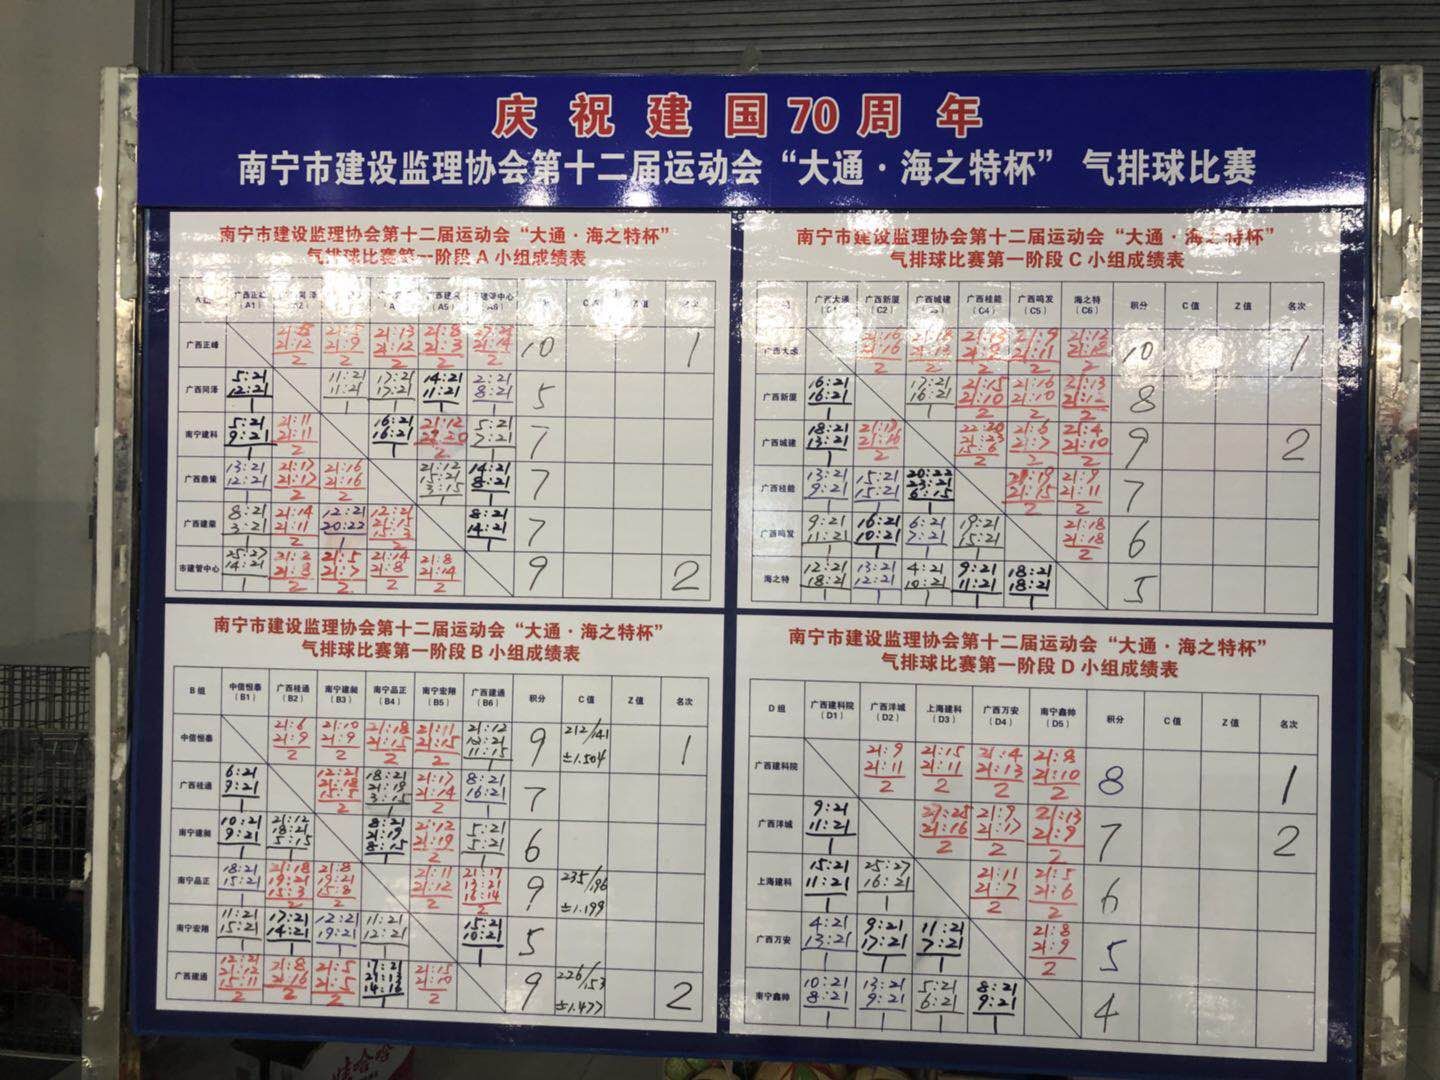 庆祝建国70周年
南宁市建设监理协会第十二届运动会“大通·海之特杯” 气排球比赛
南宁市建设监理协会第十二届运动会“大通·海之特杯”
气排球比赛第一阶段A小组成绩表
广西正峰 10 1
广西同泽 5:21 11:21 17:21 14:21 2:21 5
12:21 11:21 17:21 11:21 8:21
南宁建科 5:21 21:11 16:21 21:12 5:21 7
9:21 21:11 16:21 7:21
广西鼎策 13:21 21:17 21:16 21:12 14:21 7
12:21 21:17 21:16 15:21 8:21
3:15
广西建荣 8:21 21:14 12:21 12:21 8:21 7
3:21 21:11 20:22 21:15 14:21
15:3
市建管中心 25:27 21:2 21:5 21:14 21:8 9 2
14:21 21:8 21:7 21:8 21:14
南宁市建设监理协会第十二届运动会“大通·海之特杯”
气排球比赛第一阶段C小组成绩表
广西大通 (C1) 广西新厦 (C2) 广西城建 广西桂能 (C4) 广西鸣发 (C5) 海之特 (C6) 积分 C值 Z值 名次
广西大通 10 1
广西新厦 16:21 17:21 21:15 21:16 21:13 8
16:21 16:21 21:10 21:10 21:12
广西城建 18:21 21:17 22:20 21:6 21:4 9 2
13:21 21:16 21:23 21:7 21:10
15:6
广西桂能 13:21 15:21 20:22 21:19 21:9 7
9:21 15:21 23:21 21:15 21:11
6:15
广西鸣发 9:21 16:21 6:21 19:21 21:18 6
11:21 10:21 7:21 15:21 21:18
海之特 12:21 13:21 4:21 9:21 18:21 5
18:21 12:21 10:21 11:21 18:21
南宁市建设监理协会第十二届运动会“大通·海之特杯”
气排球比赛第一阶段B小组成绩表
B组 中信恒泰 (B1) 广西桂通 (B2) 南宁建昶 (B3) 南宁品正 (B4) 南宁宏翔 (B5) 广西建通 (B6) 积分 C值 Z值 名次
中信恒泰 21:6 21:10 21:18 21:11 21:12 9 212/141 1
21:9 21:9 21:15 21:15 12:21 ±1.504
2 2 2 2 11:15
广西桂通 6:21 12:21 18:21 21:17 8:21 7
9:21 21:18 21:19 21:14 16:21
15:5 3:15
南宁建昶 10:21 21:12 8:21 21:12 5:21 6
9:21 18:21 21:19 21:19 5:21
5:15 8:15
南宁品正 18:21 21:18 21:8 21:11 21:17 9 235/196
15:21 19:21 19:21 21:12 13:21 ±1.199
15:3 15:8 16:14
南宁宏翔 11:21 17:21 12:21 11:21 15:21 5
15:21 14:21 19:21 12:21 10:21
广西建通 12:21 21:8 21:5 17:21 21:15 9 226/153 2
21:12 21:16 21:5 21:13 21:10 ±1.477
15:11 14:16
南宁市建设监理协会第十二届运动会“大通·海之特杯”
气排球比赛第一阶段D小组成绩表
D组 广西建科院 (D1) 广西洋城 (D2) 上海建科 (D3) 广西万安 (D4) 南宁鑫帅 (D5) 积分 C值 Z值 名次
广西建科院 21:9 21:15 21:4 21:8 8 1
21:11 21:11 21:13 21:10
2 2 2 2
广西洋城 9:21 27:25 21:9 21:13 7 2
11:21 21:16 21:17 21:9
上海建科 15:21 25:27 21:11 21:5 6
11:21 16:21 21:7 21:6
广西万安 4:21 9:21 11:21 21:8 5
13:21 17:21 7:21 21:9
南宁鑫帅 10:21 13:21 5:21 8:21 4
8:21 9:21 6:21 9:21
娃哈哈